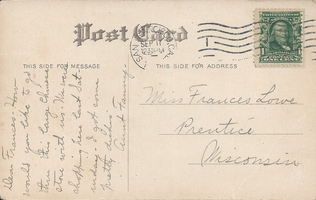 Post Card
THIS SIDE FOR MESSAGE
THIS SIDE FOR ADDRESS
SEP 11
1
Dear Frances: How
would you like to go
thru this large Chinese
store with us. We were
shopping here last Sat-
urday & got some
pretty dishes.
Aunt Fanny.
Miss Frances Lowe
Prentice
Wisconsin